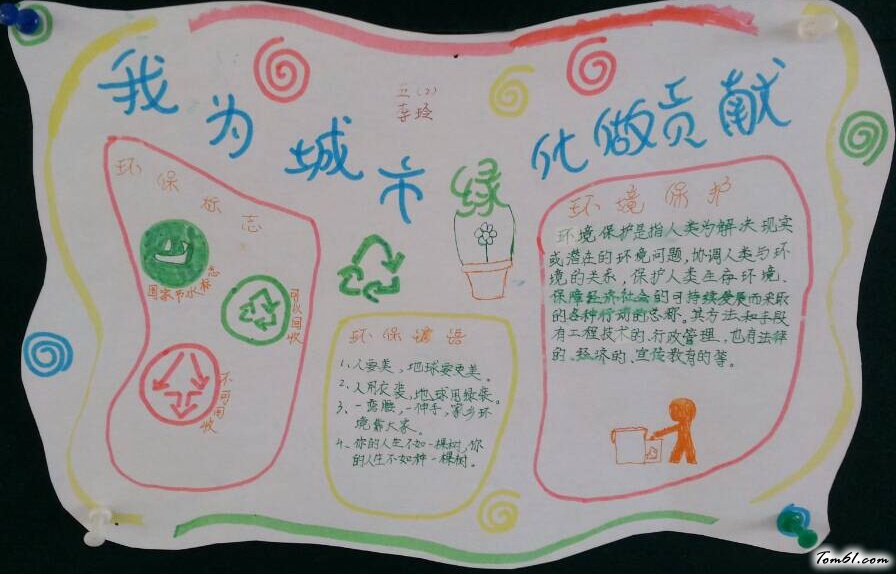 我为城市绿化做贡献
五(2)
李玲
环保标志
国家节水标志
可以回收
不可回收
环保谚语
1、人要美，地球要更美。
2、人用衣装，地球用绿装。
3、一弯腰，一伸手，家乡环
境靠大家。
4、你的人生不如一棵树，你
的人生不如种一棵树。
环境保护
环境保护是指人类为解决现实
或潜在的环境问题，协调人类与环
境的关系，保护人类生存环境、
保障经济社会的可持续发展而采取
的各种行动的总称。其方法和手段
有工程技术的、行政管理，也有法律
的、经济的、宣传教育的等。
Tom61.com